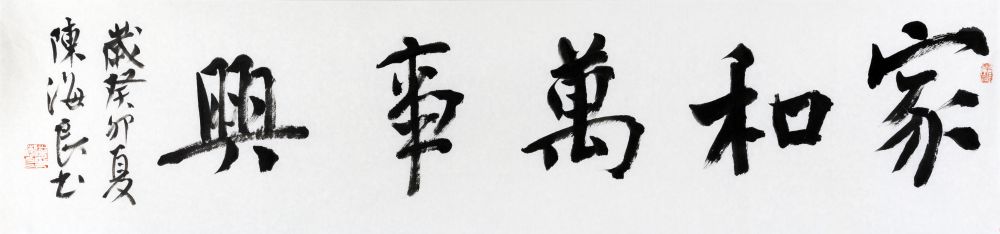 家和萬事興
歲癸卯夏
陳海良书